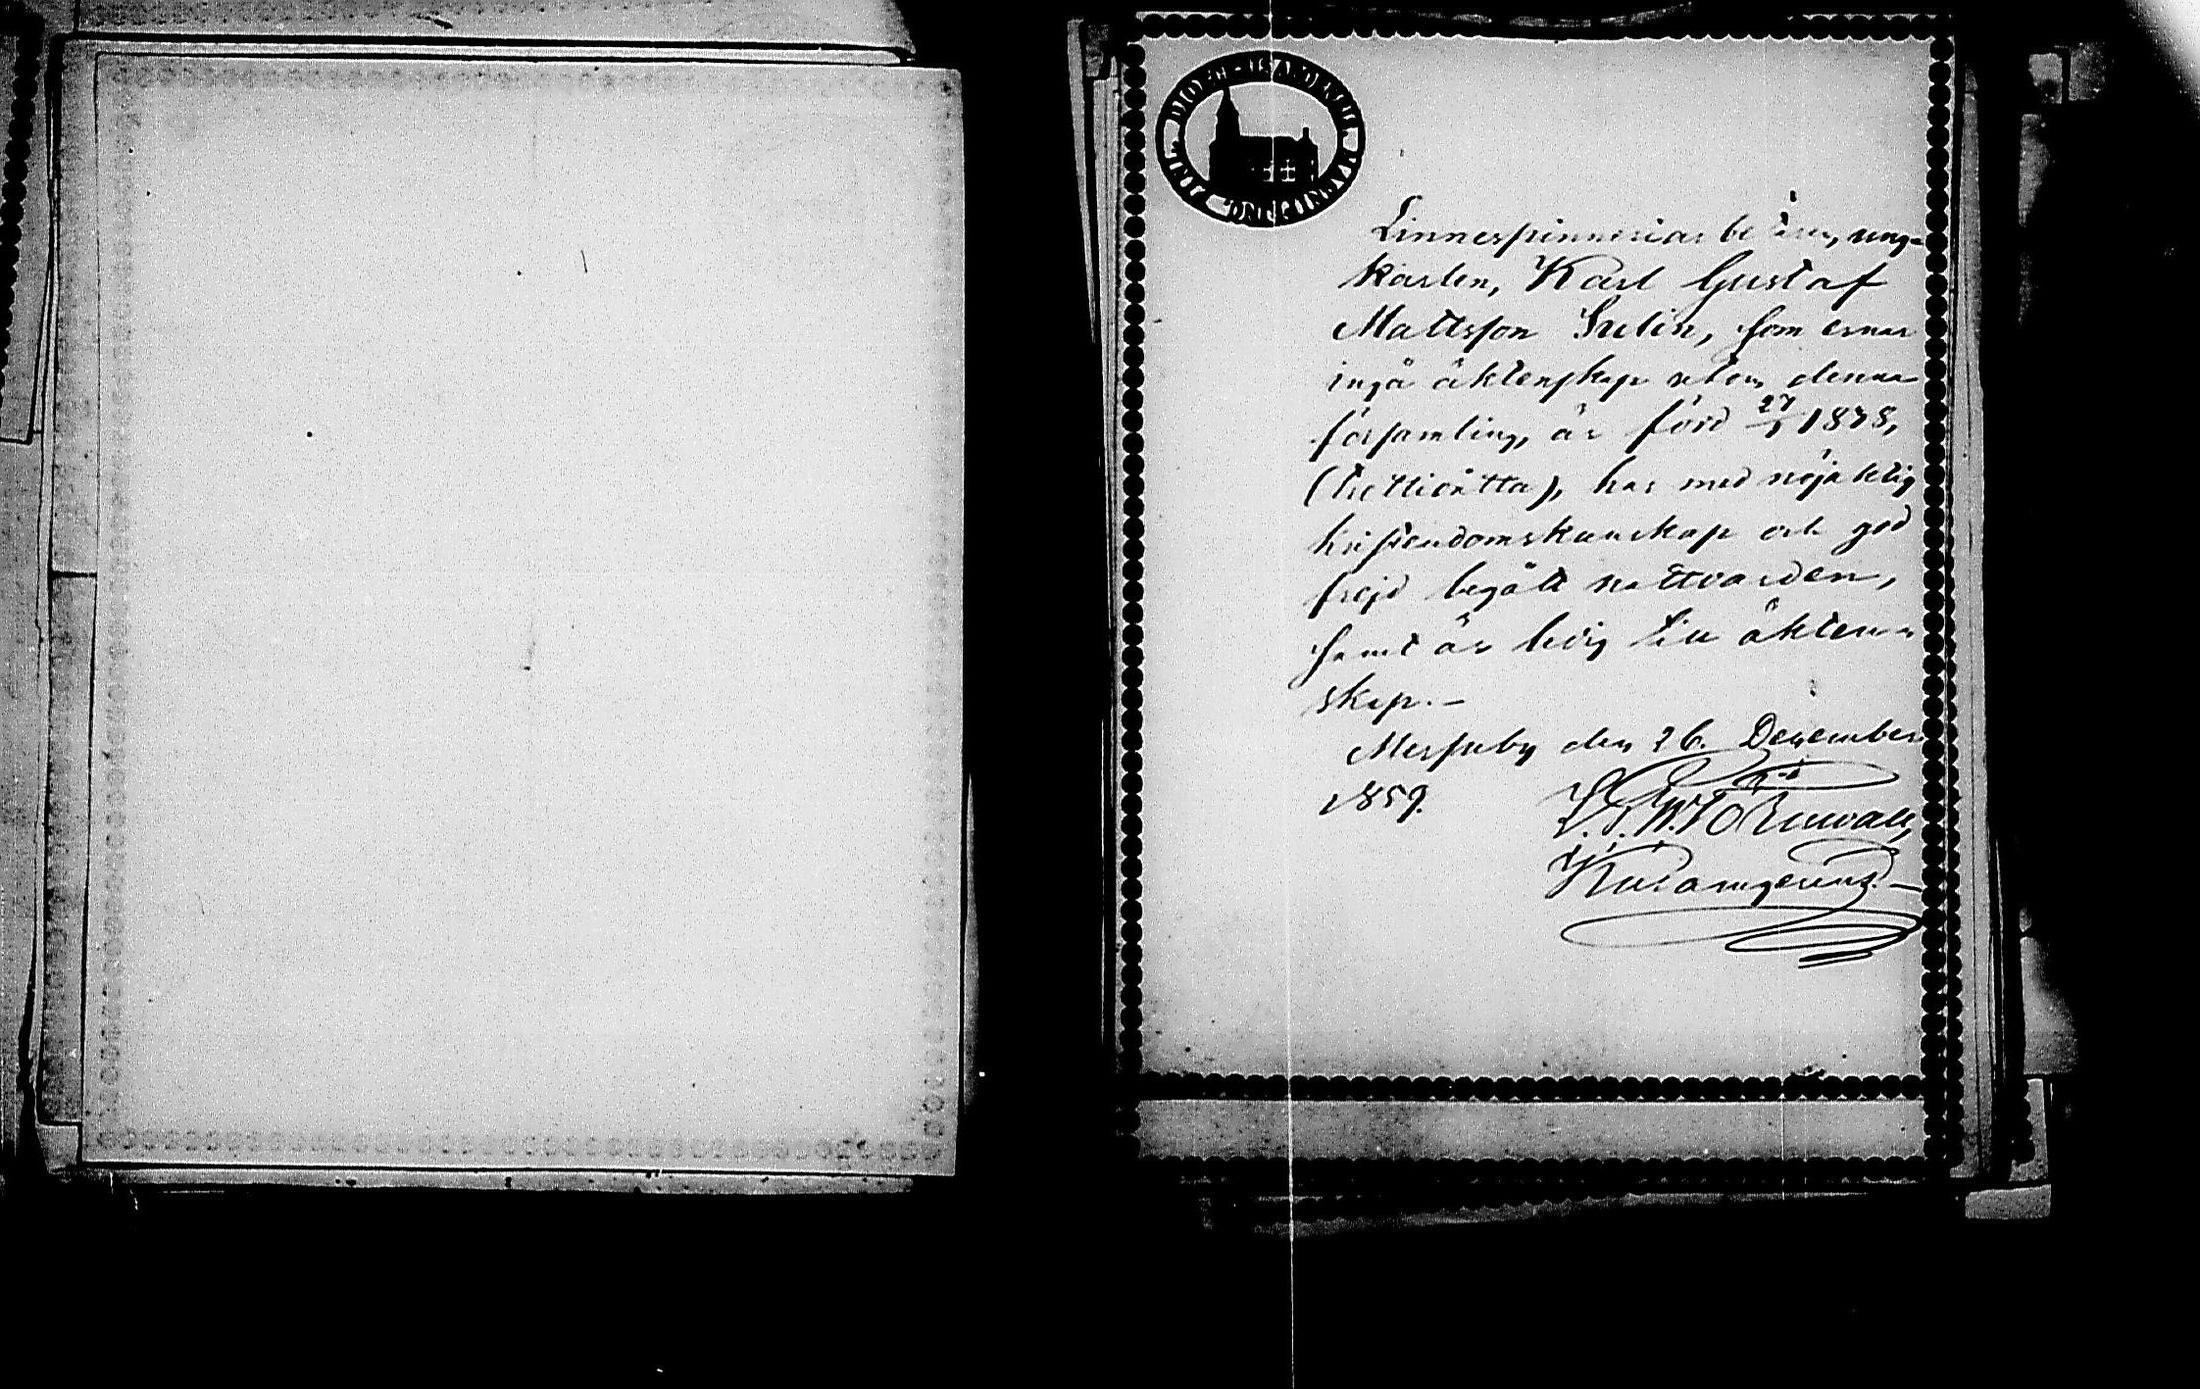 Linnespinneriarbetaren, ung-
karlen, Karl Gustaf
Mattsson Sulin, som ernar
ingå äktenskap utom denna
församling, är född 27/1 1838,
(trettioåtta), har med nöjaktig
kristendomskunskap och god
frejd begått nattvarden,
samt är ledig till äkten-
skap. –
Messuby den 26. December
1859.